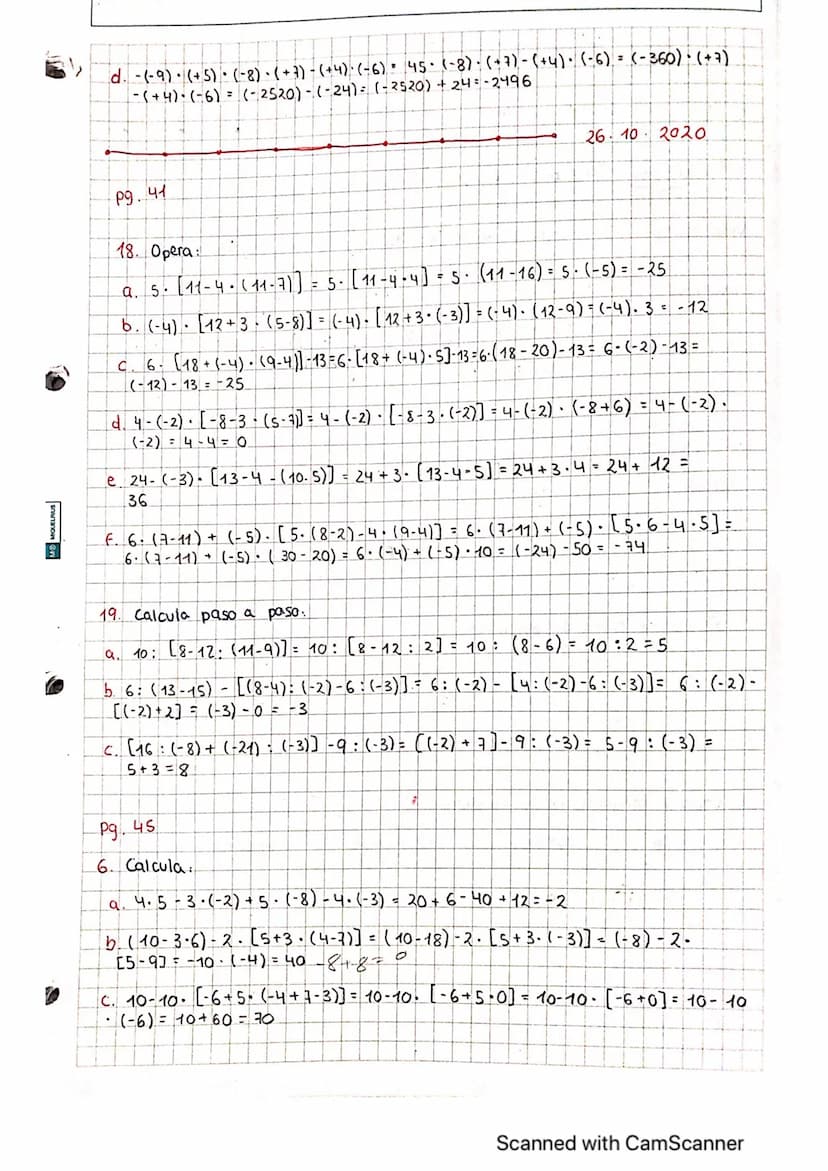 d. -(-9)·(+5)·(-8)·(+7)-(+4)·(-6)= 45·(-8)·(+7)-(+4)·(-6) = (-360)·(+7)
-(+4)·(-6) = (-2520)-(-24)= (-2520)+24=-2496
26·10·2020
pg. 41
18. Opera:
a. 5·[11-4·(11-7)] = 5·[11-4·4] = 5·(11-16) = 5·(-5) = -25
b. (-4)·[12+3·(5-8)] = (-4)·[12+3·(-3)] = (-4)·(12-9) = (-4)·3 = -12
c. 6·[18+(-4)·(9-4)]-13=6·[18+(-4)·5]-13=6·(18-20)-13= 6·(-2)-13=
(-12)-13 = -25
d. 4-(-2)·[-8-3·(5-7)]= 4-(-2)·[-8-3·(-2)] = 4-(-2)·(-8+6) = 4-(-2)·
(-2) = 4-4 = 0
e. 24-(-3)·[13-4-(10-5)] = 24+3·[13-4-5] = 24+3·4 = 24+12 =
36
f. 6·(7-11)+(-5)·[5·(8-2)-4·(9-4)] = 6·(7-11)+(-5)·[5·6-4·5]=
6·(7-11)+(-5)·(30-20) = 6·(-4)+(-5)·10 = (-24)-50 = -74
19. Calcula paso a paso:
a. 10:[8-12:(11-9)]= 10:[8-12:2] = 10:(8-6) = 10:2 = 5
b. 6:(13-15)-[(8-4):(-2)-6:(-3)] = 6:(-2)-[4:(-2)-6:(-3)]= 6:(-2)-
[(-2)+2] = (-3)-0 = -3
c. [16:(-8)+(-21):(-3)]-9:(-3)= [(-2)+7]-9:(-3)= 5-9:(-3) =
5+3=8
MIQUELRIUS
pg. 45
6. Calcula:
a. 4·5-3·(-2)+5·(-8)-4·(-3) = 20+6-40+12=-2
b. (10-3·6)-2·[5+3·(4-7)] = (10-18)-2·[5+3·(-3)] = (-8)-2·
[5-9] = -10·(-4)=40 -8+8=0
c. 10-10·[-6+5·(-4+7-3)]= 10-10·[-6+5·0] = 10-10·[-6+0] = 10-10
·(-6) = 10+60 = 70
Scanned with CamScanner